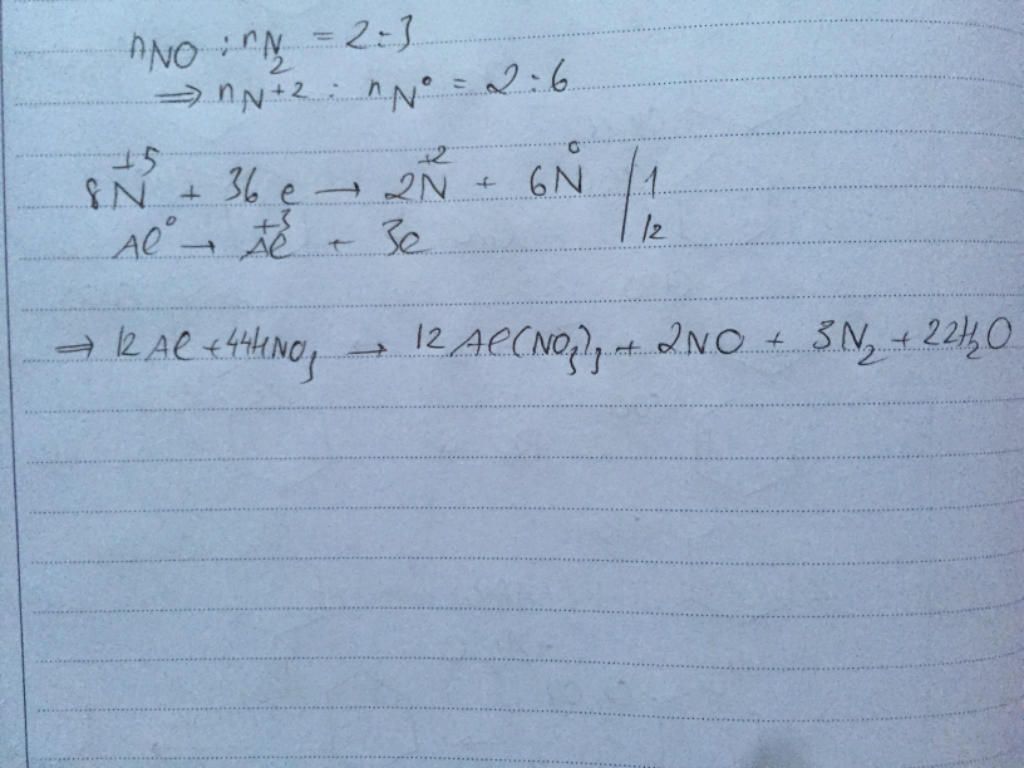 nNO : nN₂ = 2:3
⇒ nN⁺² : nN⁰ = 2:6
8N⁺⁵ + 36e → 2N⁺² + 6N⁰ | 1
Al⁰ → Al⁺³ + 3e | 12
⇒ 12Al + 44HNO₃ → 12Al(NO₃)₃ + 2NO + 3N₂ + 22H₂O